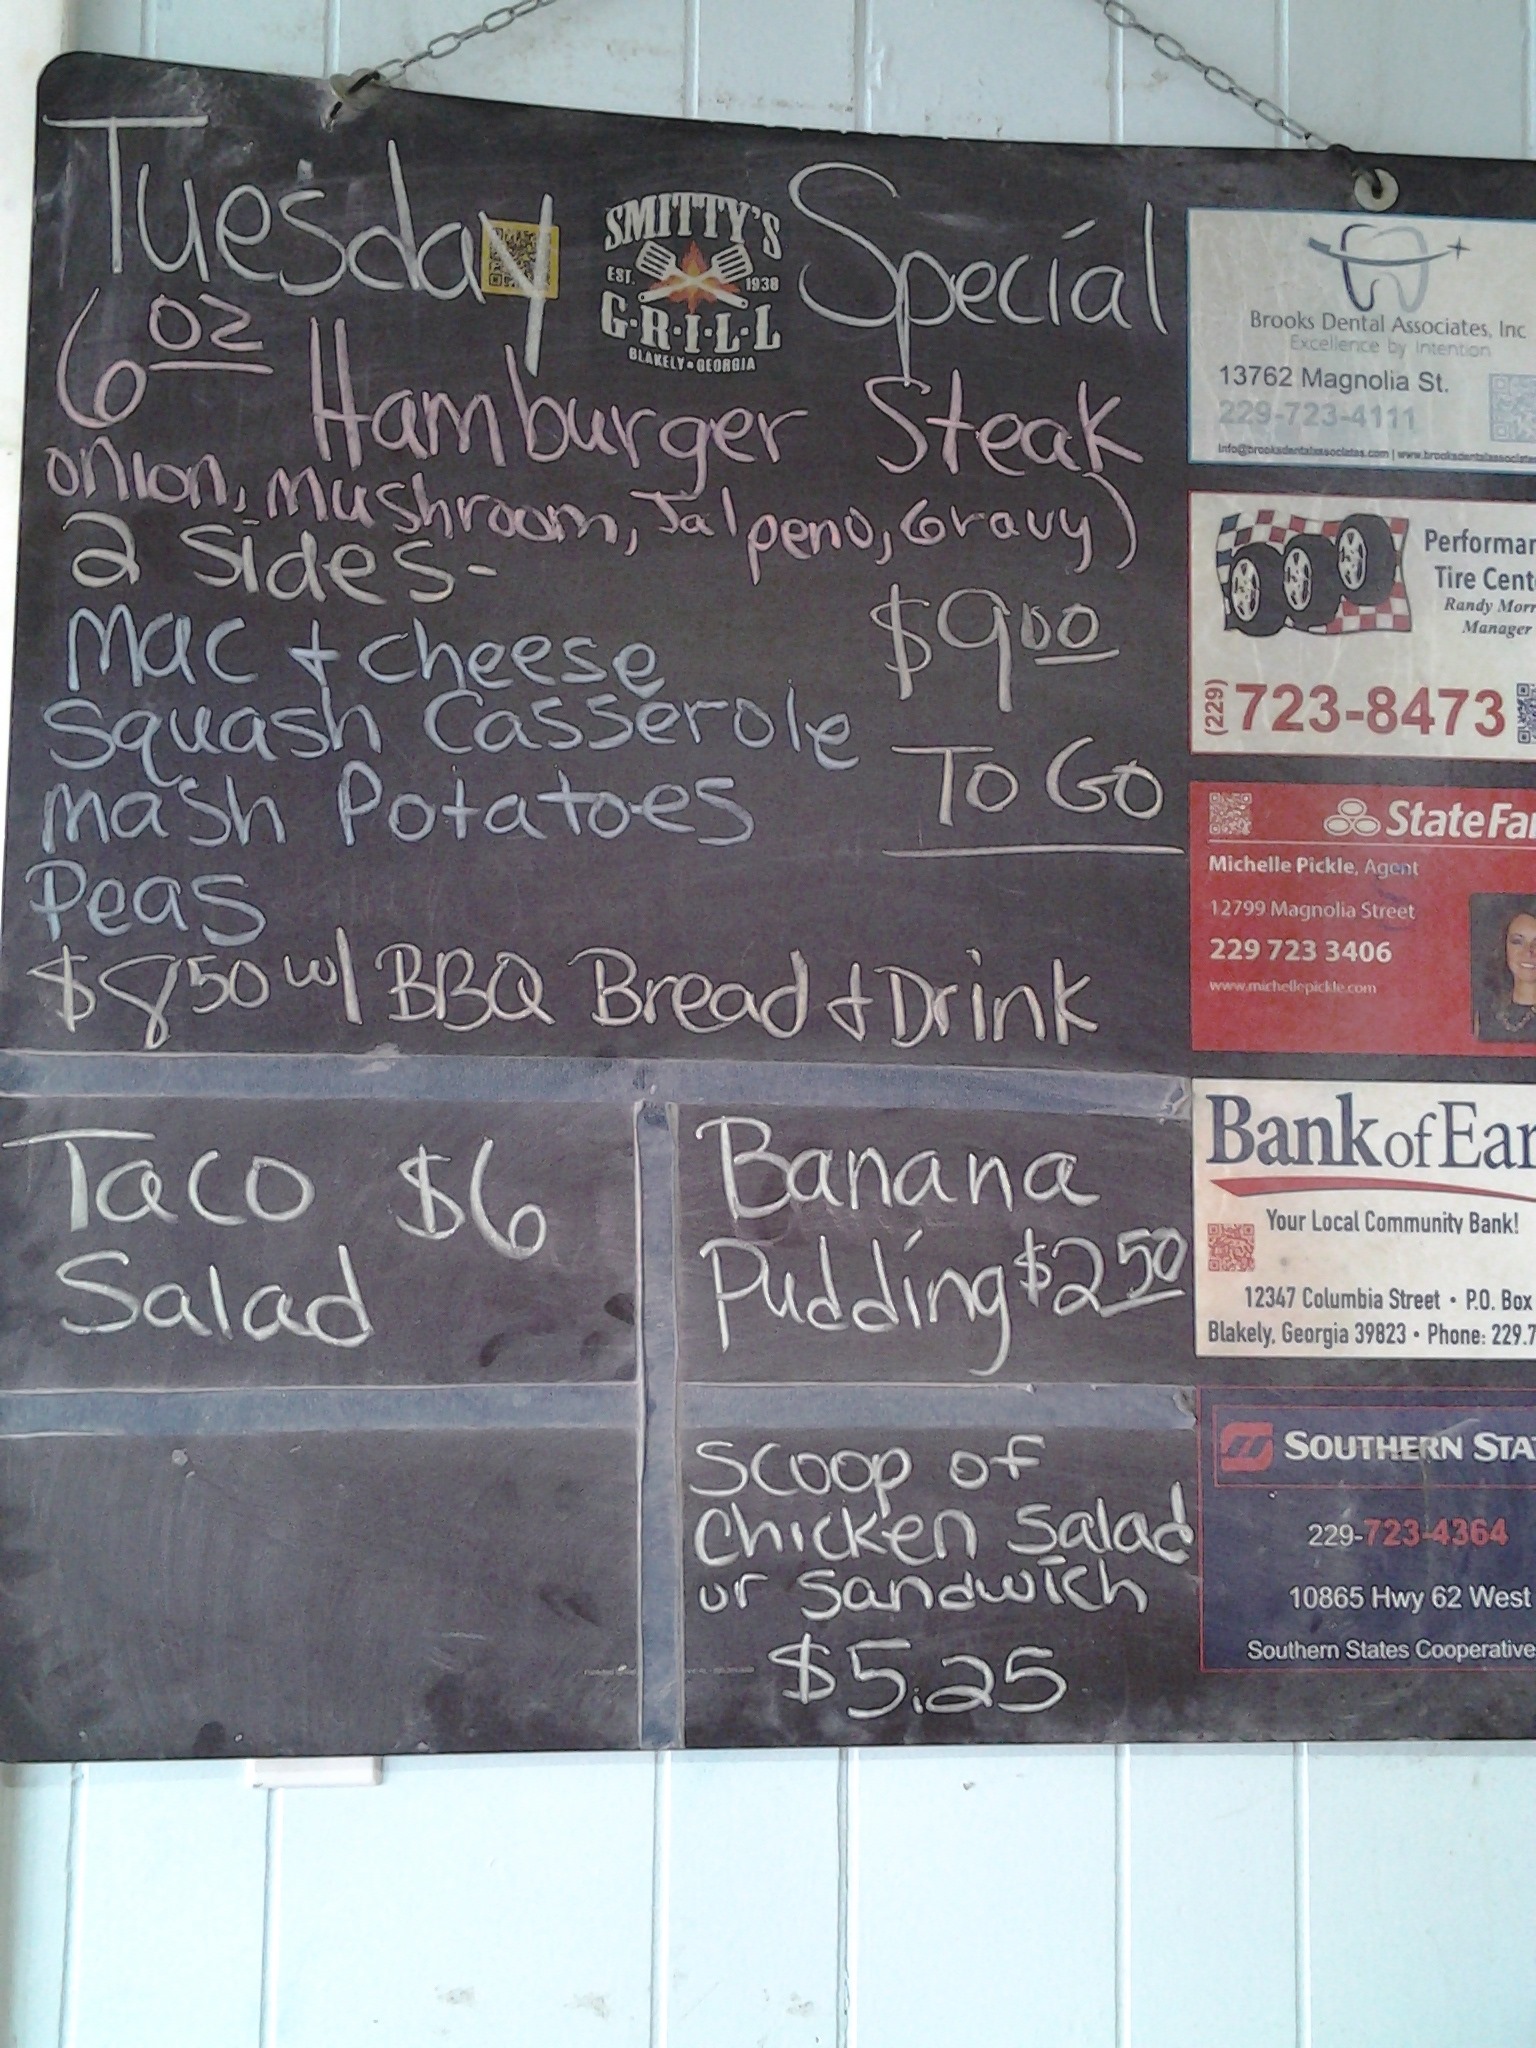 Tuesday Special
SMITTY'S
EST. 1938
G·R·I·L·L
BLAKELY • GEORGIA
6 oz Hamburger Steak
onion, mushroom, Jalpeno, Gravy)
2 Sides-
Mac + cheese
$9.00
Squash Casserole
To Go
Mash Potatoes
Peas
$8.50 w/ BBQ Bread + Drink
Taco $6
Salad
Banana
Pudding $2.50
Scoop of
Chicken Salad
or Sandwich
$5.25
Brooks Dental Associates, Inc
Excellence by Intention
13762 Magnolia St.
229-723-4111
Performan
Tire Cent
Randy Morr
Manager
(229) 723-8473
StateFa
Michelle Pickle, Agent
12799 Magnolia Street
229 723 3406
www.michellepickle.com
Bank of Ear
Your Local Community Bank!
12347 Columbia Street • P.O. Box
Blakely, Georgia 39823 • Phone: 229.7
SOUTHERN STA
229-723-4364
10865 Hwy 62 West
Southern States Cooperative